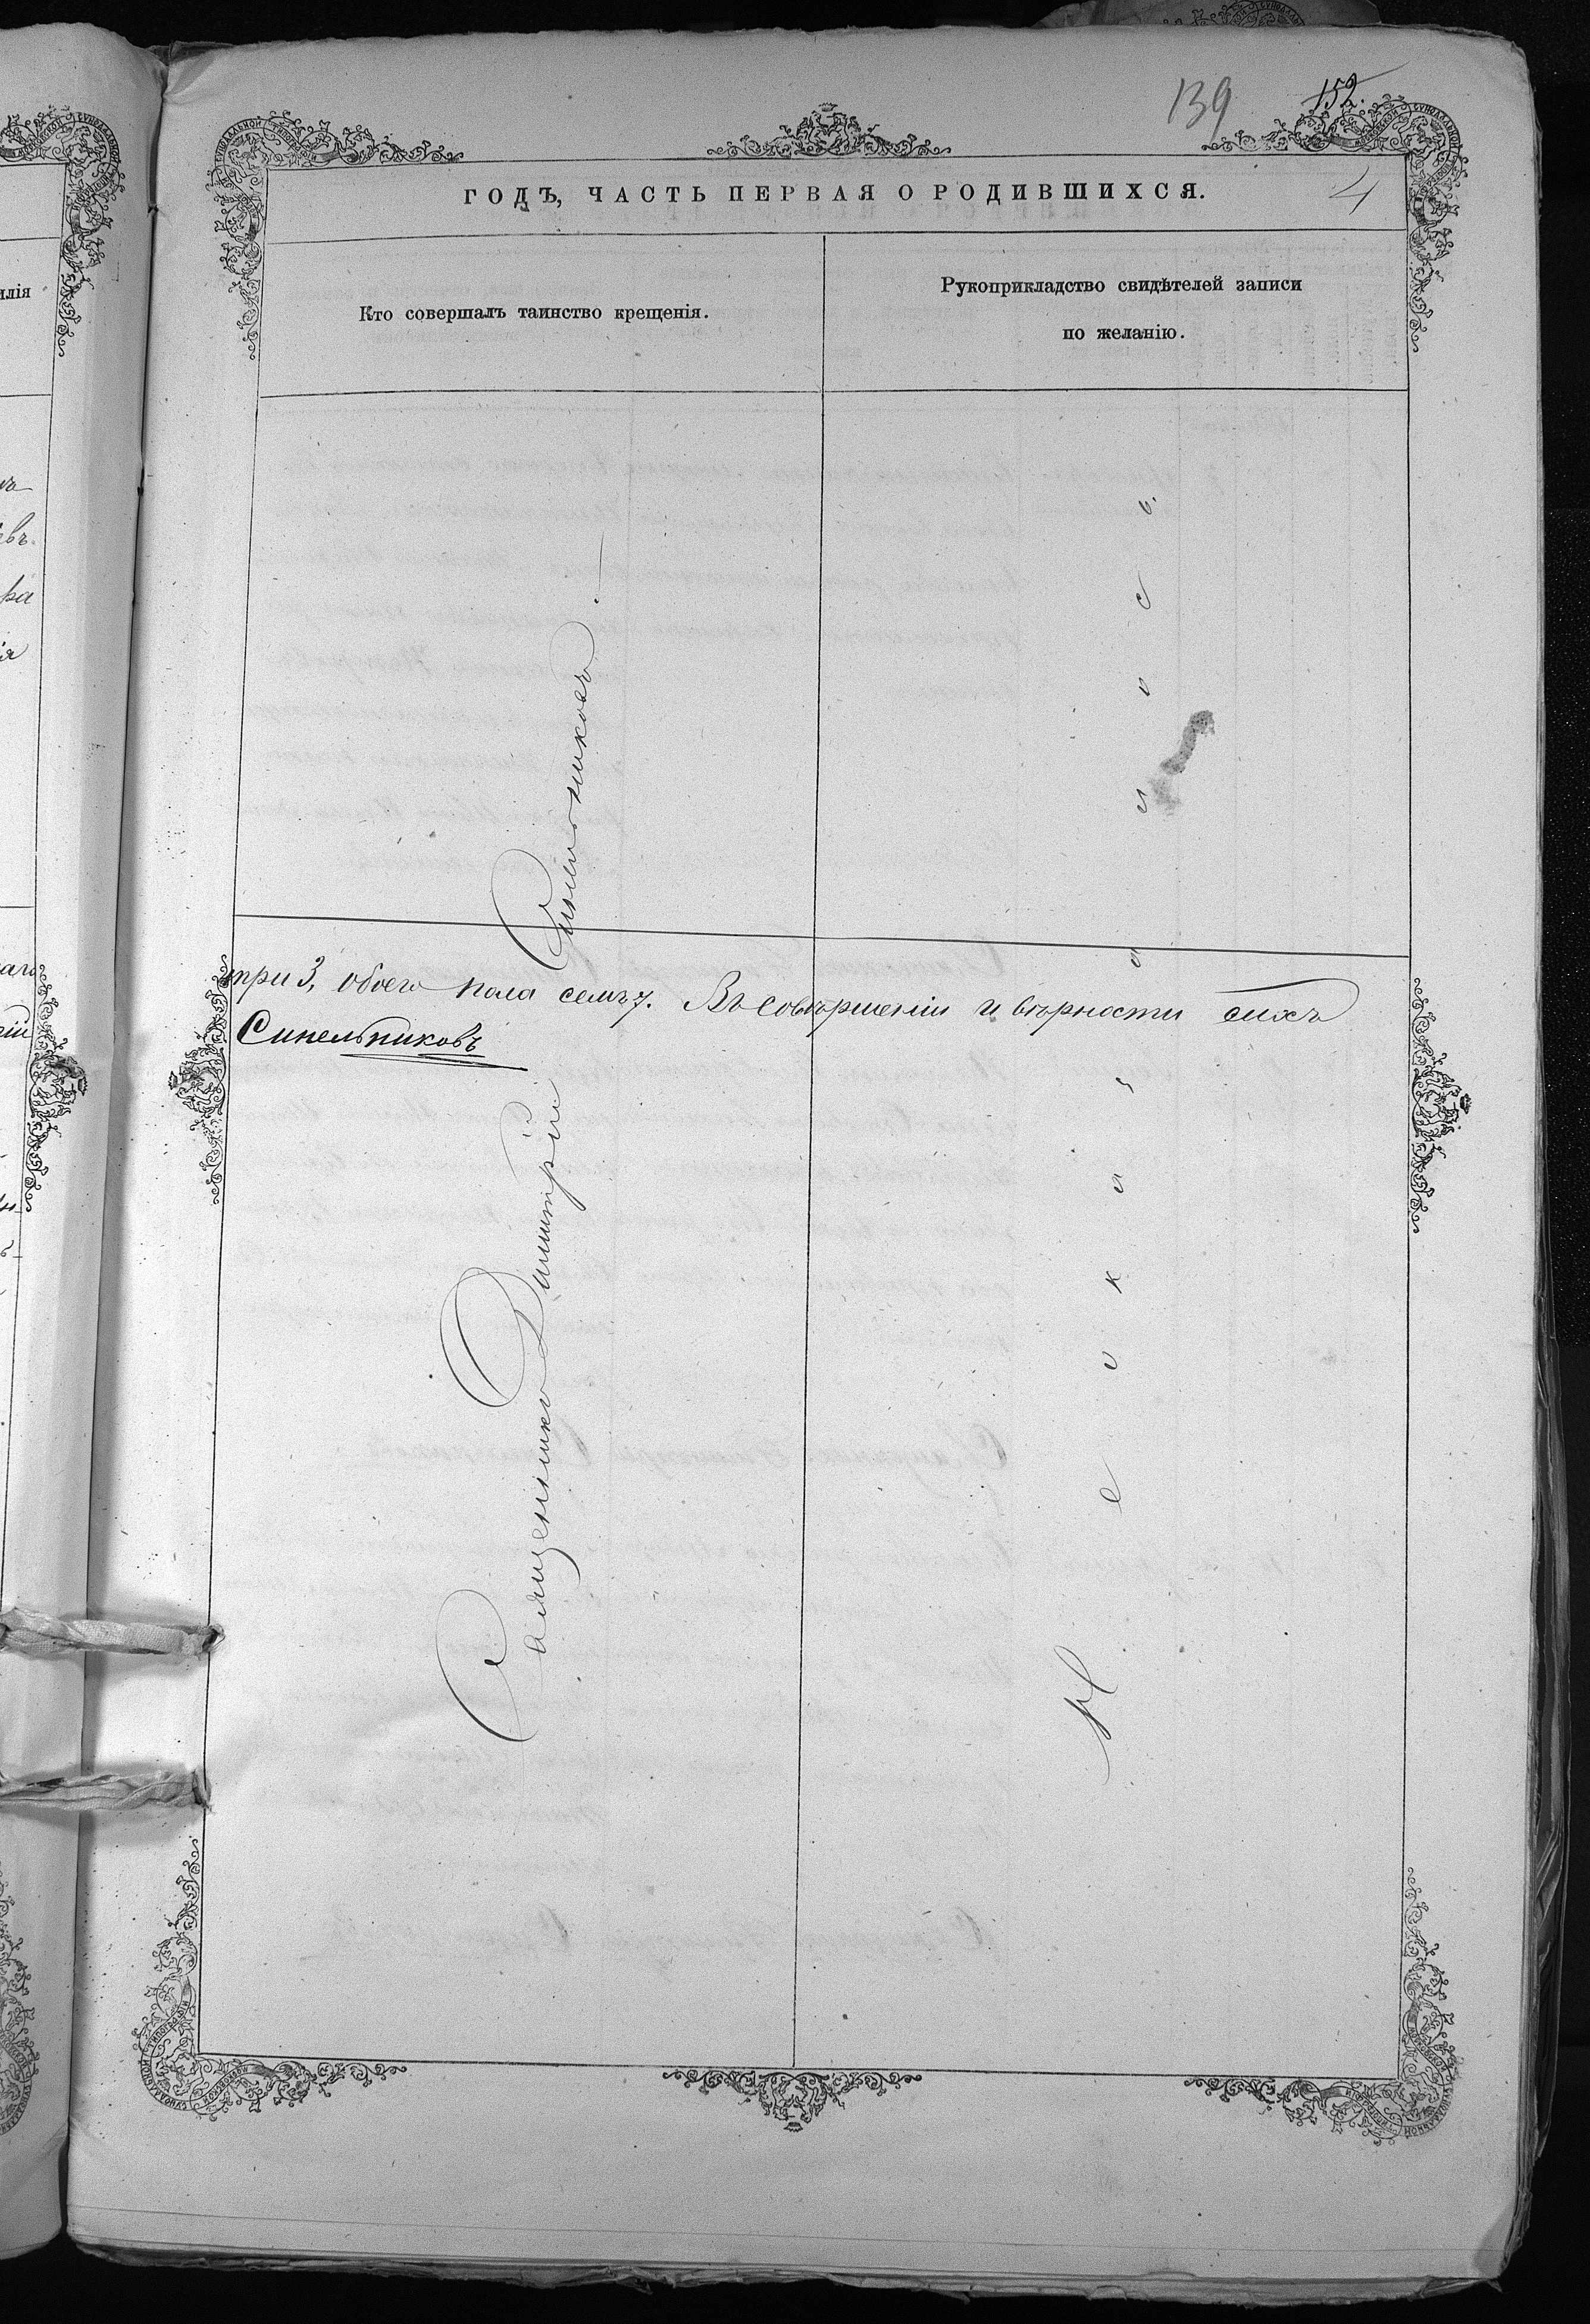 139
152.
ГОДЪ, ЧАСТЬ ПЕРВАЯ О РОДИВШИХСЯ.
4
Кто совершалъ таинство крещенія.
Рукоприкладство свидѣтелей записи
по желанію.
Священникъ Димитрій Синельниковъ.
три 3, обоего пола семь 7. Въ совершеніи и вѣрности сихъ
Синельниковъ